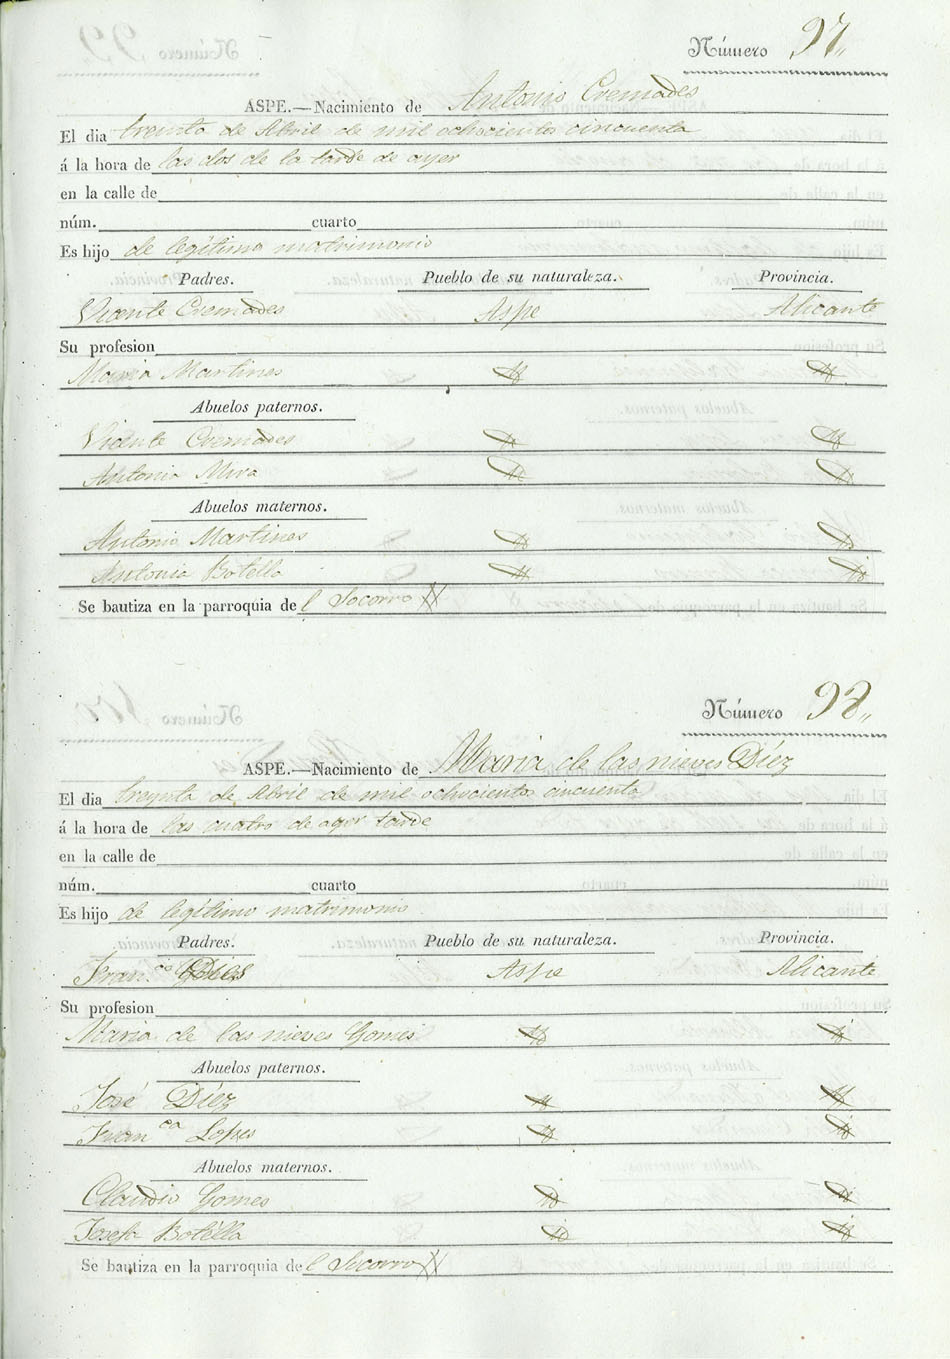 Número 97,,
ASPE.—Nacimiento de Antonio Cremades
El dia treinta de Abril de mil ochocientos cincuenta
á la hora de las dos de la tarde de ayer
en la calle de
núm. cuarto
Es hijo de legitimo matrimonio
Padres. Pueblo de su naturaleza. Provincia.
Vicente Cremades Aspe Alicante
Su profesion
Maria Martines Id Id
Abuelos paternos.
Vicente Cremades Id Id
Antonia Mira Id Id
Abuelos maternos.
Antonio Martines Id Id
Antonia Botella Id Id
Se bautiza en la parroquia de l Socorro
Número 98,,
ASPE.—Nacimiento de Maria de las nieves Díez
El dia treynta de Abril de mil ochocientos cincuenta
á la hora de las cuatro de ayer tarde
en la calle de
núm. cuarto
Es hijo de legitimo matrimonio
Padres. Pueblo de su naturaleza. Provincia.
Fran.co Díes Aspe Alicante
Su profesion
Maria de las nieves Gomes Id Id
Abuelos paternos.
José Díez Id Id
Fran ca Lopes Id Id
Abuelos maternos.
Claudio Gomes Id Id
Josefa Botélla Id Id
Se bautiza en la parroquia de l Socorro